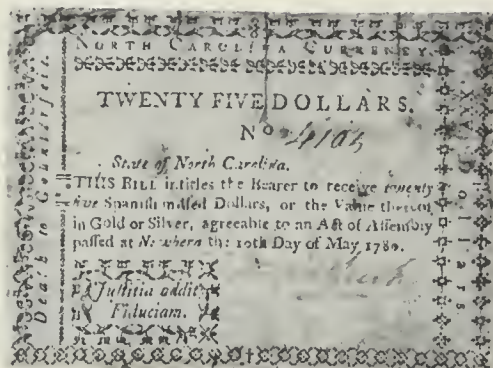 NORTH CAROLINA CURRENCY.
TWENTY FIVE DOLLARS.
No
State of North Carolina.
THIS BILL intitles the Bearer to receive twenty
five Spanish milled Dollars, or the Value thereof
in Gold or Silver, agreeable to an Act of Assembly
passed at Newbern the 10th Day of May 1780.
Justitia addit
Fiduciam.
Death to Counterfeit.
XXV Dollars